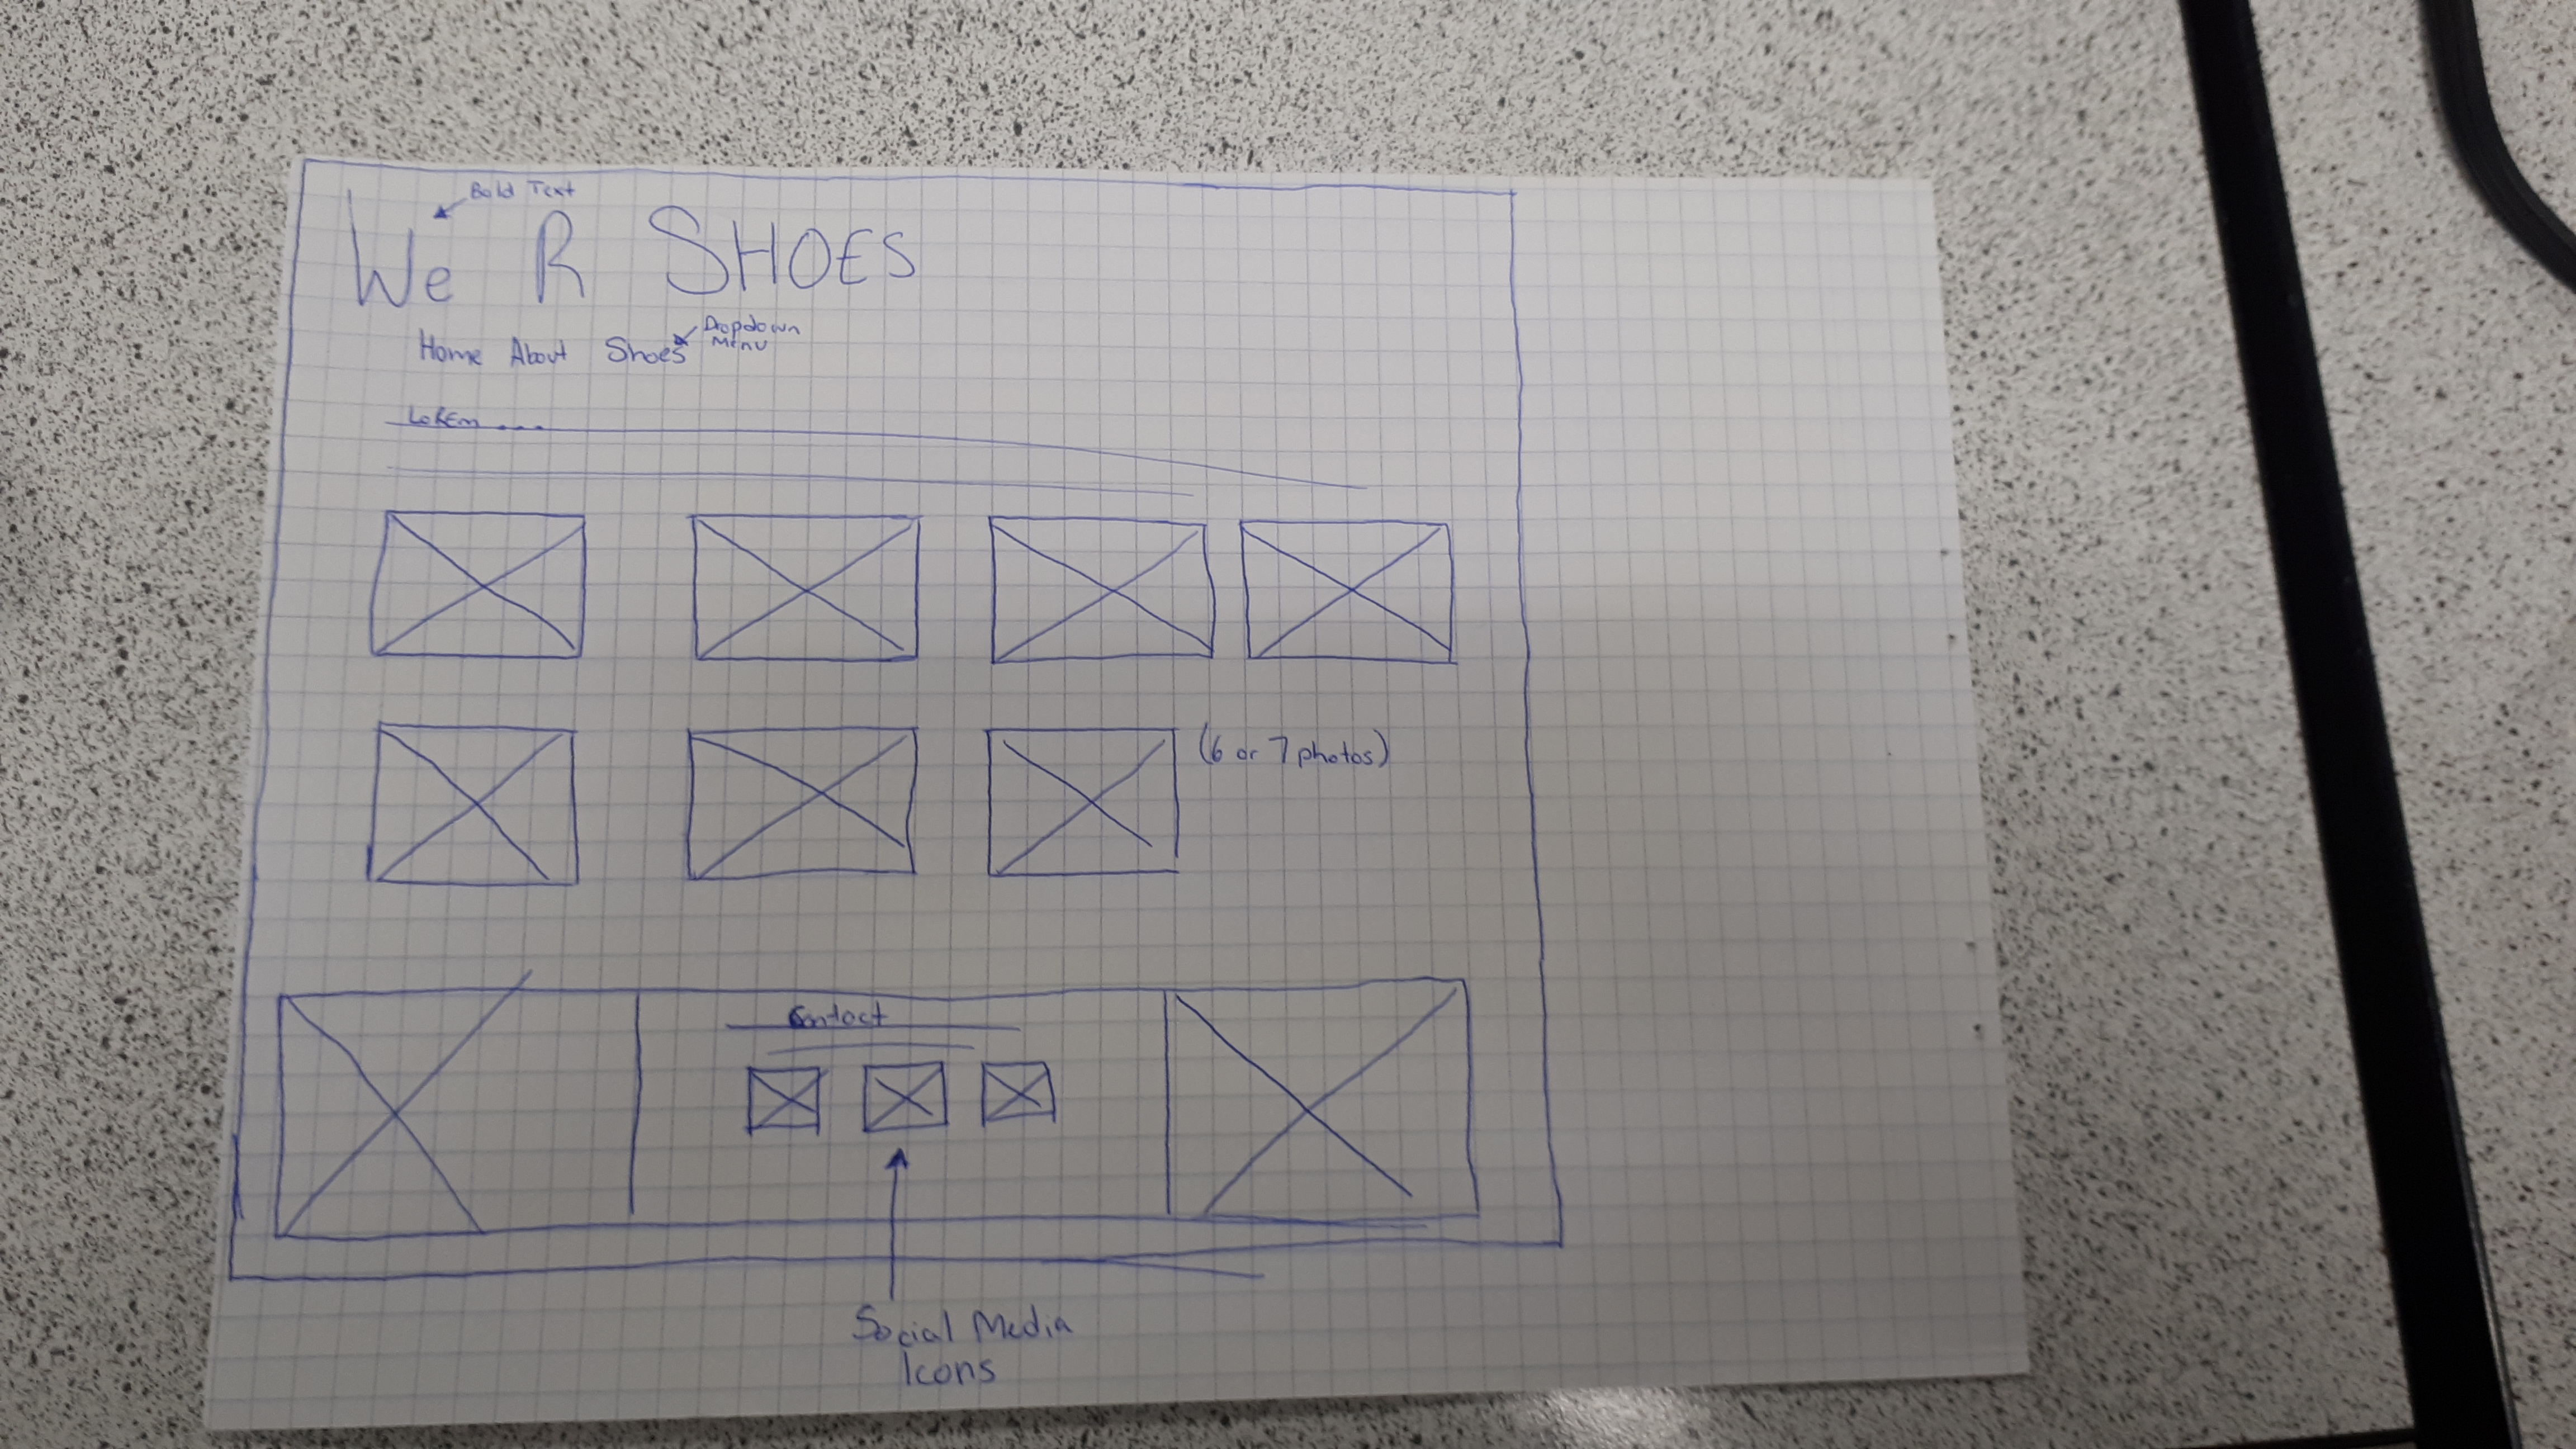 Bold Text
We R SHOES
Home About Shoes
Dropdown
Menu
Lorem ....
(6 or 7 photos)
Contact
Social Media
Icons